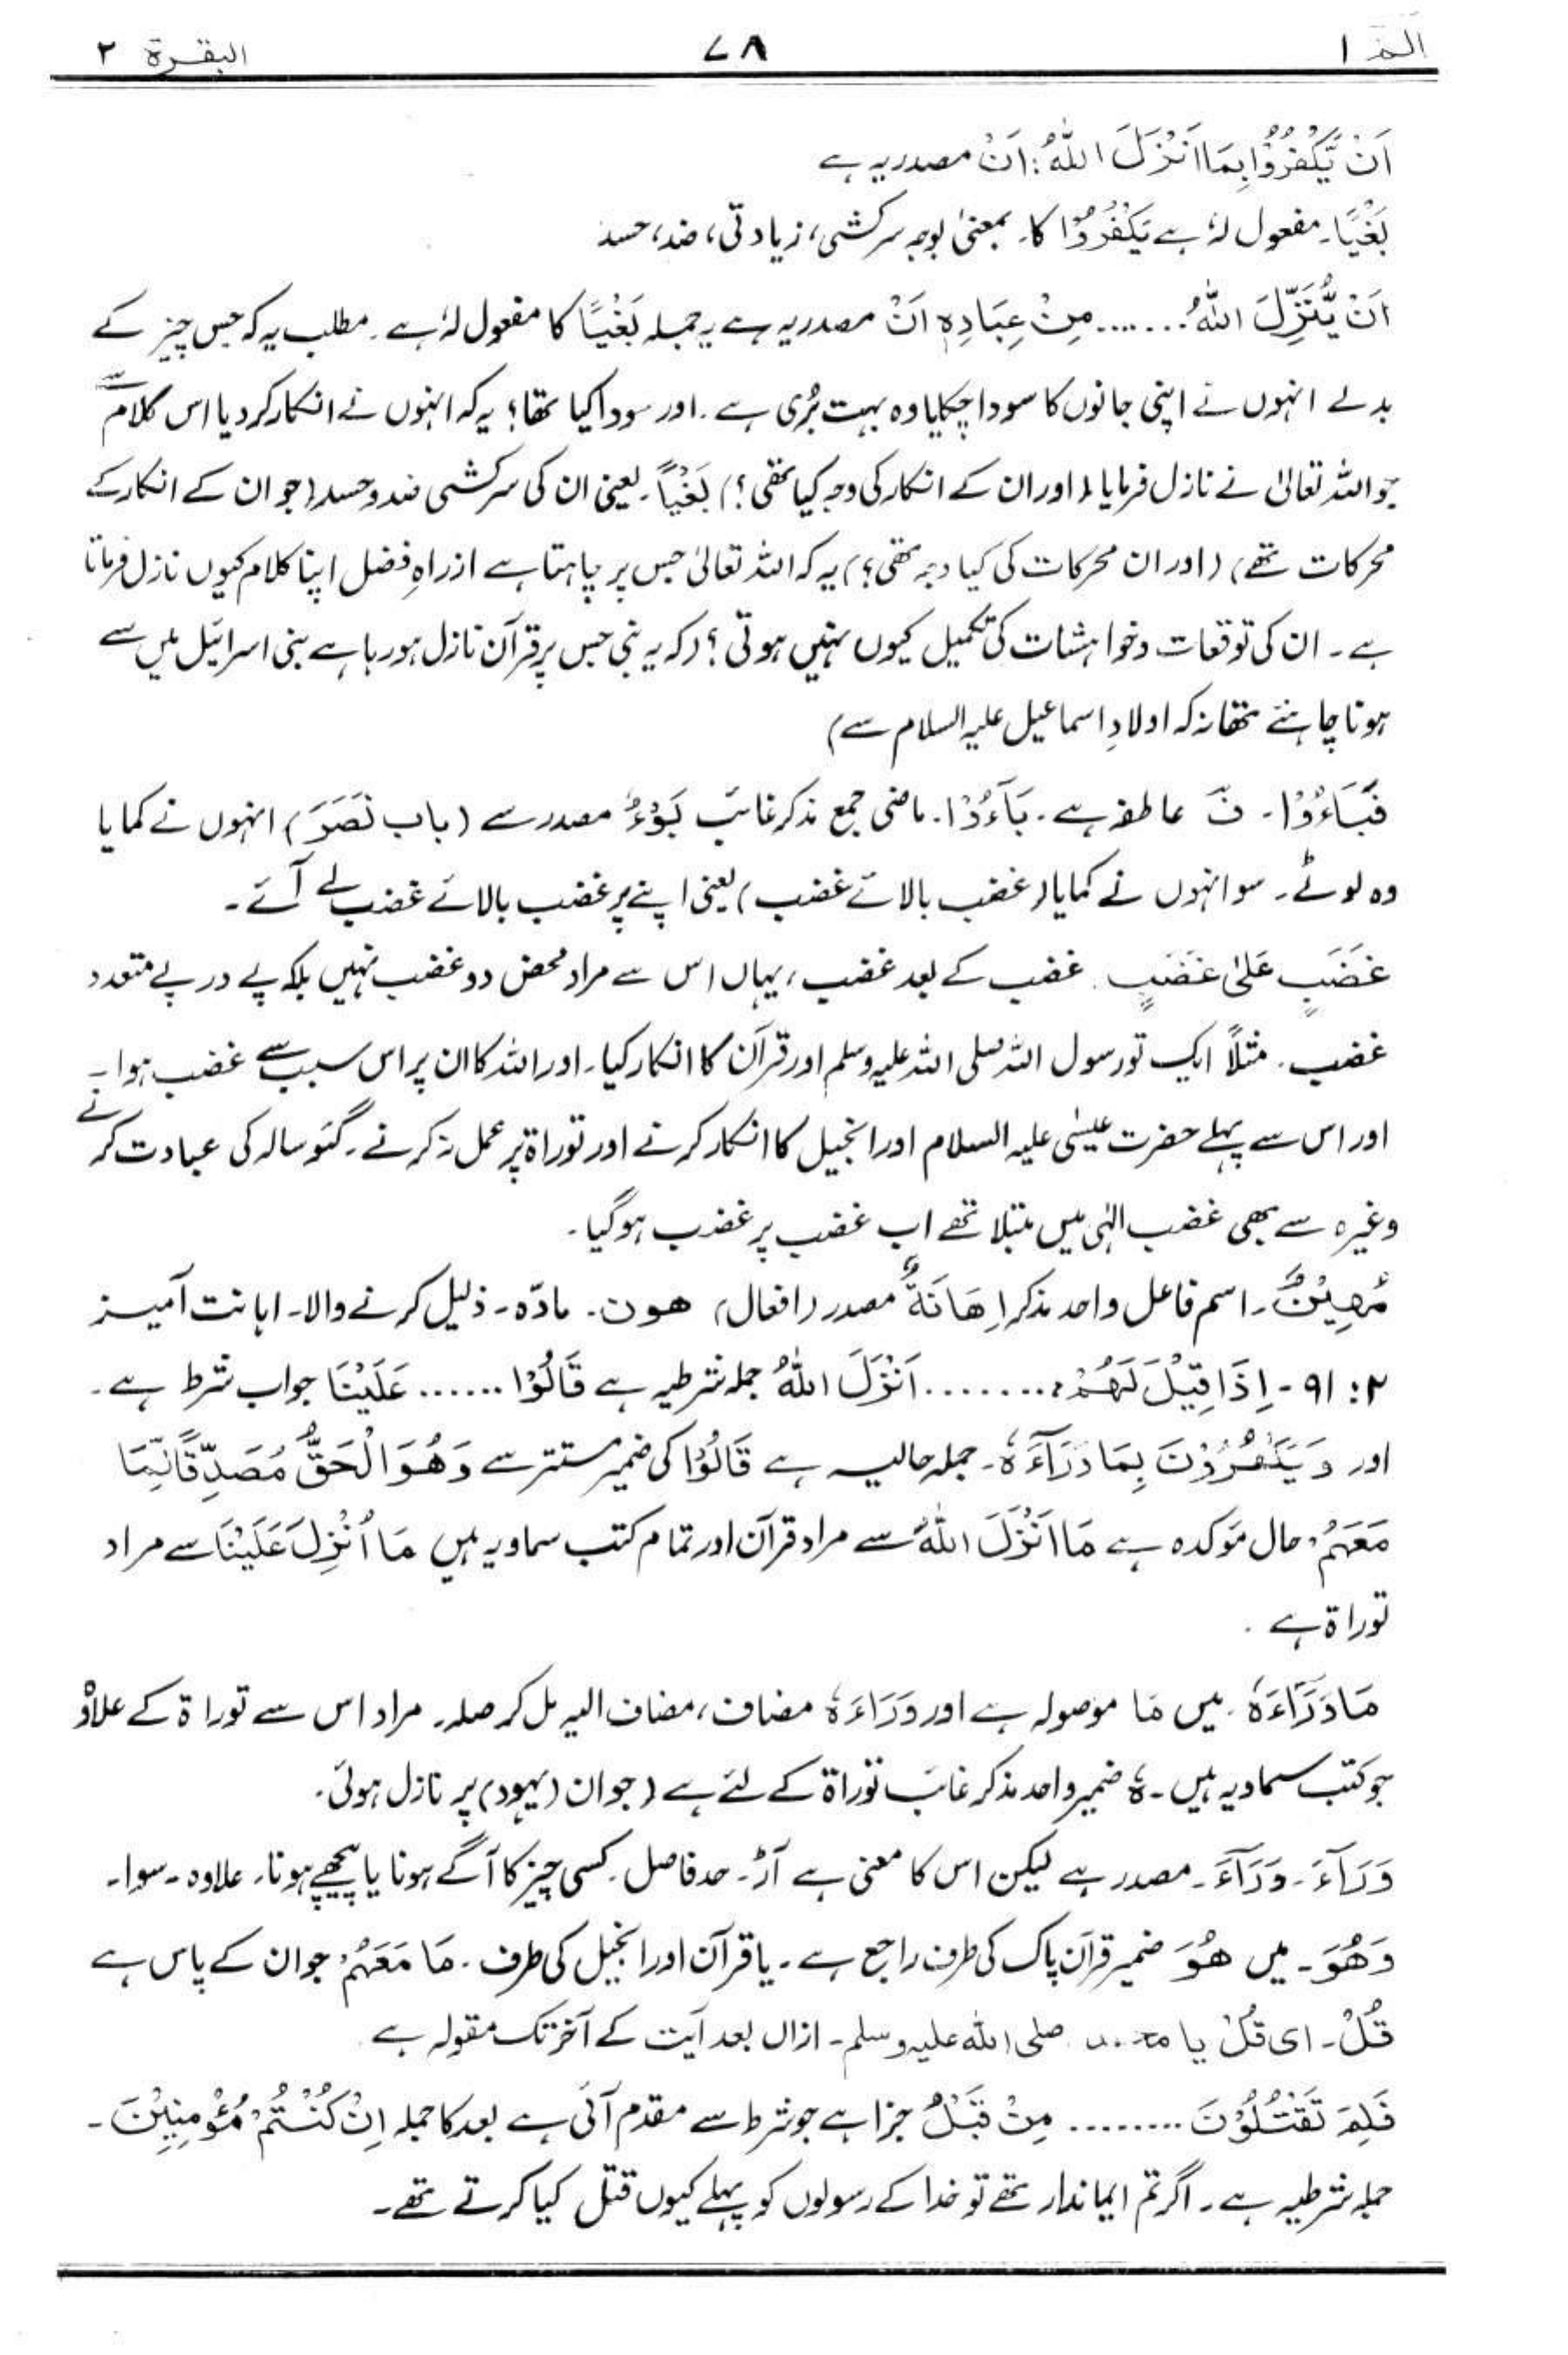 الٓمّٓ ۱ ۷۸ البقـرة ۲
اَنْ يَّكْفُرُوْا بِمَا اَنْزَلَ اللّٰهُ: اَنْ مصدریہ ہے
بَغْيًا۔ مفعول لہٗ ہے يَكْفُرُوْا کا۔ بمعنیٰ بوجہ سرکشی، زیادتی، ضد، حسد
اَنْ يُّنَزِّلَ اللّٰهُ....... مِنْ عِبَادِهٖ اَنْ مصدریہ ہے یہ جملہ بَغْيًا کا مفعول لہٗ ہے۔ مطلب یہ کہ جس چیز کے
بدلے انہوں نے اپنی جانوں کا سودا چکایا وہ بہت بُری ہے۔ اور سودا کیا تھا؟ یہ کہ انہوں نے انکار کر دیا اس کلام سے
جو اللہ تعالیٰ نے نازل فرمایا (اور ان کے انکار کی وجہ کیا تھی؟) بَغْيًا۔ یعنی ان کی سرکشی ضد و حسد (جو ان کے انکار کے
محرکات تھے) (اور ان محرکات کی کیا وجہ تھی؟) یہ کہ اللہ تعالیٰ جس پر چاہتا ہے ازراہِ فضل اپنا کلام کیوں نازل فرماتا
ہے۔ ان کی توقعات و خواہشات کی تکمیل کیوں نہیں ہوتی؟ (کہ یہ نبی جس پر قرآن نازل ہو رہا ہے بنی اسرائیل میں سے
ہونا چاہئے تھا نہ کہ اولادِ اسماعیل علیہ السلام سے)
فَبَآءُوْا۔ فَ عاطفہ ہے۔ بَآءُوْا۔ ماضی جمع مذکر غائب بَوْءٌ مصدر سے (باب نَصَرَ) انہوں نے کمایا
وہ لوٹے۔ سو انہوں نے کمایا (غضب بالائے غضب) یعنی اپنے پر غضب بالائے غضب لے آئے۔
غَضَبٍ عَلىٰ غَضَبٍ۔ غضب کے بعد غضب، یہاں اس سے مراد محض دو غضب نہیں بلکہ پے در پے متعدد
غضب۔ مثلاً ایک تو رسول اللہ صلی اللہ علیہ وسلم اور قرآن کا انکار کیا۔ اور اللہ کا ان پر اس سبب سے غضب ہوا۔
اور اس سے پہلے حضرت عیسٰی علیہ السلام اور انجیل کا انکار کرنے اور توراۃ پر عمل نہ کرنے۔ گئو سالہ کی عبادت کرنے
وغیرہ سے بھی غضب الٰہی میں مبتلا تھے اب غضب پر غضب ہو گیا۔
مُّهِيْنٌ۔ اسم فاعل واحد مذکر اِهَانَةٌ مصدر (افعال) ھون۔ مادّہ۔ ذلیل کرنے والا۔ اہانت آمیز
۲: ۹۱۔ اِذَا قِيْلَ لَهُمْ........ اَنْزَلَ اللّٰهُ جملہ شرطیہ ہے قَالُوْا...... عَلَيْنَا جواب شرط ہے۔
اور وَيَكْفُرُوْنَ بِمَا وَرَآءَهٗ۔ جملہ حالیہ ہے قَالُوْا کی ضمیر مستتر سے وَهُوَ الْحَقُّ مُصَدِّقًا لِّمَا
مَعَهُمْ حال مؤکدہ ہے مَا اَنْزَلَ اللّٰهُ سے مراد قرآن اور تمام کتب سماویہ ہیں مَا اُنْزِلَ عَلَيْنَا سے مراد
توراۃ ہے۔
مَا وَرَآءَهٗ۔ میں مَا موصولہ ہے اور وَرَاءَهٗ مضاف، مضاف الیہ مل کر صلہ۔ مراد اس سے توراۃ کے علاوہ
جو کتب سماویہ ہیں۔ هٗ ضمیر واحد مذکر غائب توراۃ کے لئے ہے (جو ان (یہود) پر نازل ہوئی۔
وَرَآءَ۔ وَرَآءَ۔ مصدر ہے لیکن اس کا معنی ہے آڑ۔ حد فاصل۔ کسی چیز کا آگے ہونا یا پیچھے ہونا۔ علاوہ۔ سوا۔
وَهُوَ۔ میں هُوَ ضمیر قرآن پاک کی طرف راجع ہے۔ یا قرآن اور انجیل کی طرف۔ مَا مَعَهُمْ جو ان کے پاس ہے
قُلْ۔ ای قُلْ یا صلی اللہ علیہ وسلم۔ ازاں بعد آیت کے آخر تک مقولہ ہے
فَلِمَ تَقْتُلُوْنَ......... مِنْ قَبْلُ جزا ہے جو شرط سے مقدم آئی ہے بعد کا جملہ اِنْ كُنْتُمْ مُّؤْمِنِيْنَ۔
جملہ شرطیہ ہے۔ اگر تم ایماندار تھے تو خدا کے رسولوں کو پہلے کیوں قتل کیا کرتے تھے۔